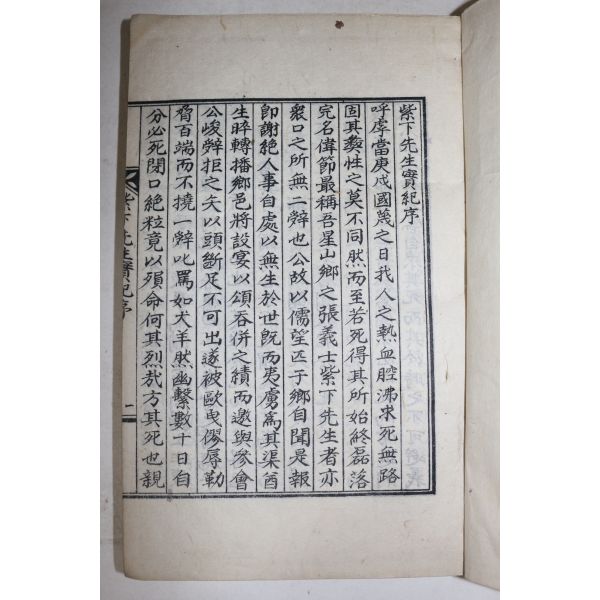 紫下先生實紀序
呼虖當庚戌國蔑之日我人之熱血腔沸求死無路
固其彝性之莫不同然而至若死得其所始終磊落
完名偉節最稱吾星山鄉之張義士紫下先生者亦
衆口之所無二辭也公故以儒望匹于鄉自聞是報
卽謝絕人事自處以無生於世旣而夷虜爲其渠酋
生晬轉播鄉邑將設宴以頌吞併之績而邀與參會
公峻辭拒之矢以頭斷足不可出遂被歐曳僇辱勒
脅百端而不撓一辭叱罵如犬羊然幽繫數十日自
分必死閉口絕粒竟以殞命何其烈哉方其死也親
紫下先生實紀序
一